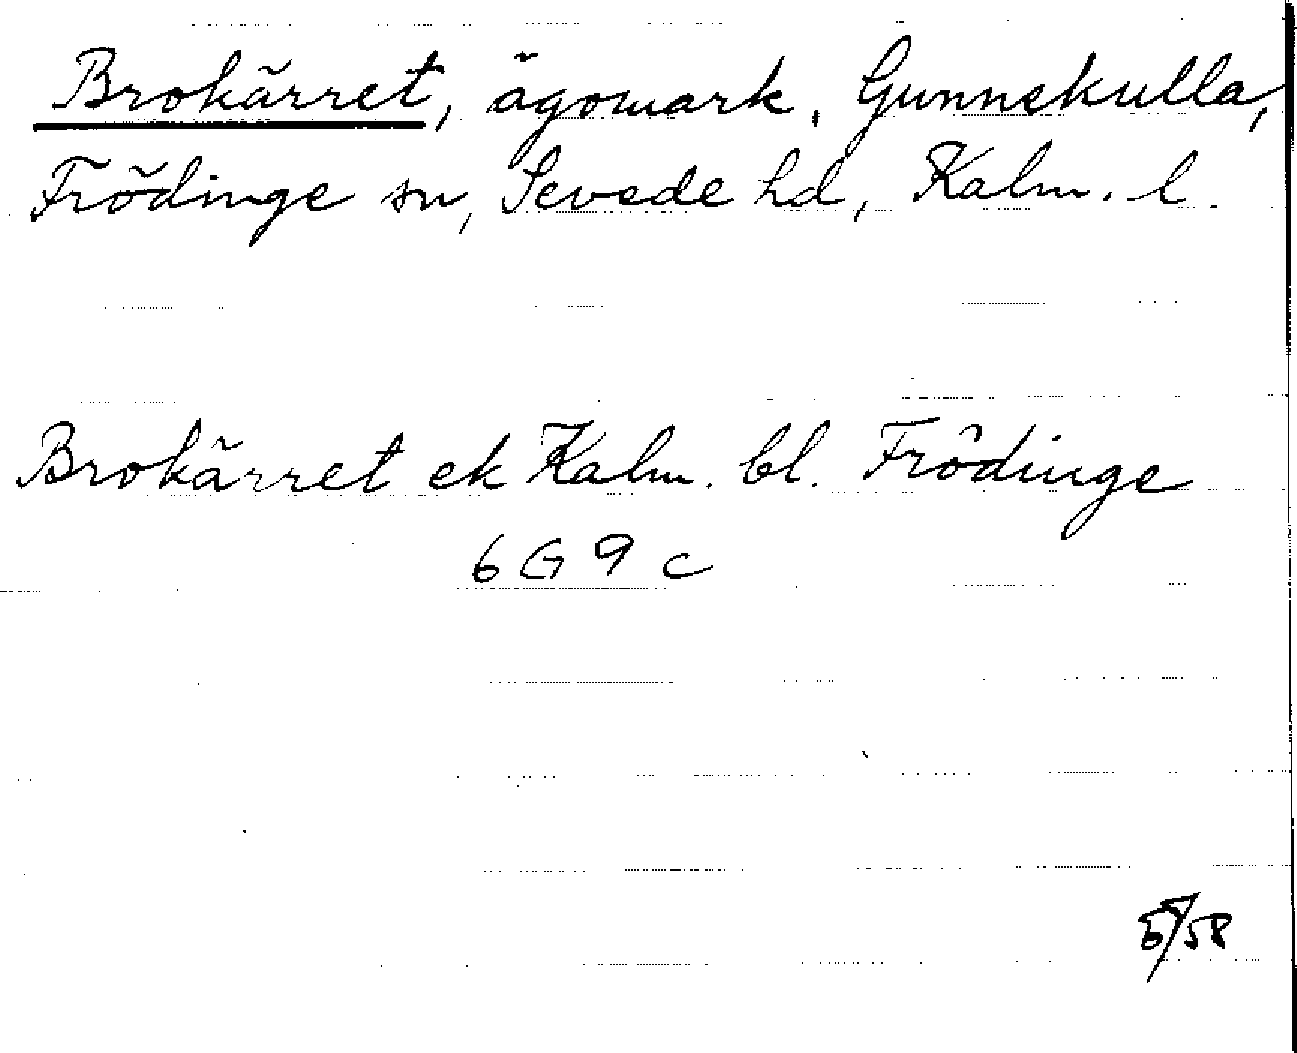 Brokärret, ägomark, Gunnekulla,
Frödinge sn, Sevede hd, Kalm. l.
Brokärret ek Kalm. bl. Frödinge
6 G 9 c